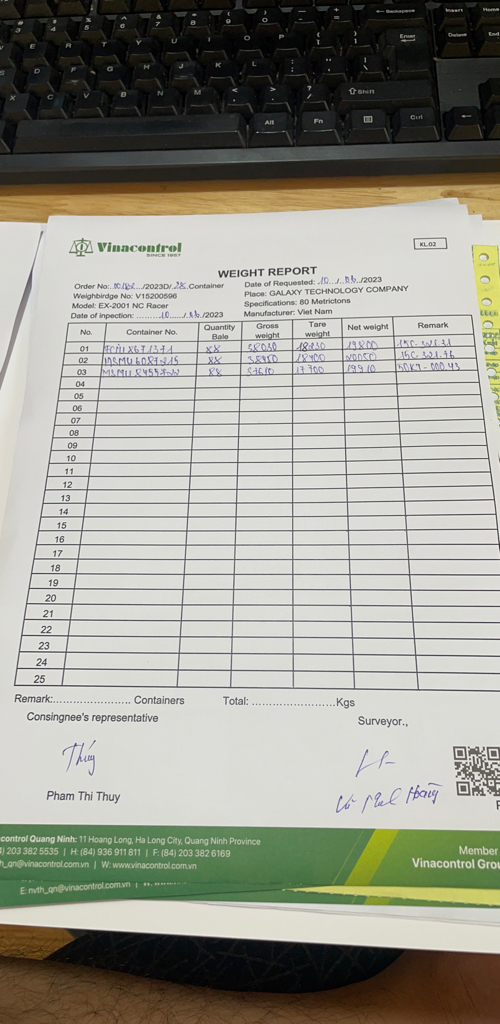 Vinacontrol
SINCE 1957
KL.02
WEIGHT REPORT
Order No: /2023D/ Container
Date of Requested: 10 / 06 /2023
Weighbirdge No: V15200596
Place: GALAXY TECHNOLOGY COMPANY
Model: EX-2001 NC Racer
Specifications: 80 Metrictons
Date of inpection: 10 / 06 /2023
Manufacturer: Viet Nam
No. Container No. Quantity Bale Gross weight Tare weight Net weight Remark
01 88 38030 18230 19800
02 88 38450 18400 20050
03 88 37610 17700 19910
04
05
06
07
08
09
10
11
12
13
14
15
16
17
18
19
20
21
22
23
24
25
Remark:....................... Containers Total: ........................Kgs
Consingnee's representative
Surveyor.,
Thúy
Pham Thi Thuy
control Quang Ninh: 11 Hoang Long, Ha Long City, Quang Ninh Province
) 203 382 5535 | H: (84) 936 911 811 | F: (84) 203 382 6169
h_qn@vinacontrol.com.vn | W: www.vinacontrol.com.vn
Member
Vinacontrol Grou
E: nvth_qn@vinacontrol.com.vn
Backspace
Insert
Home
Enter
Delete
End
Shift
Alt
Fn
Ctrl